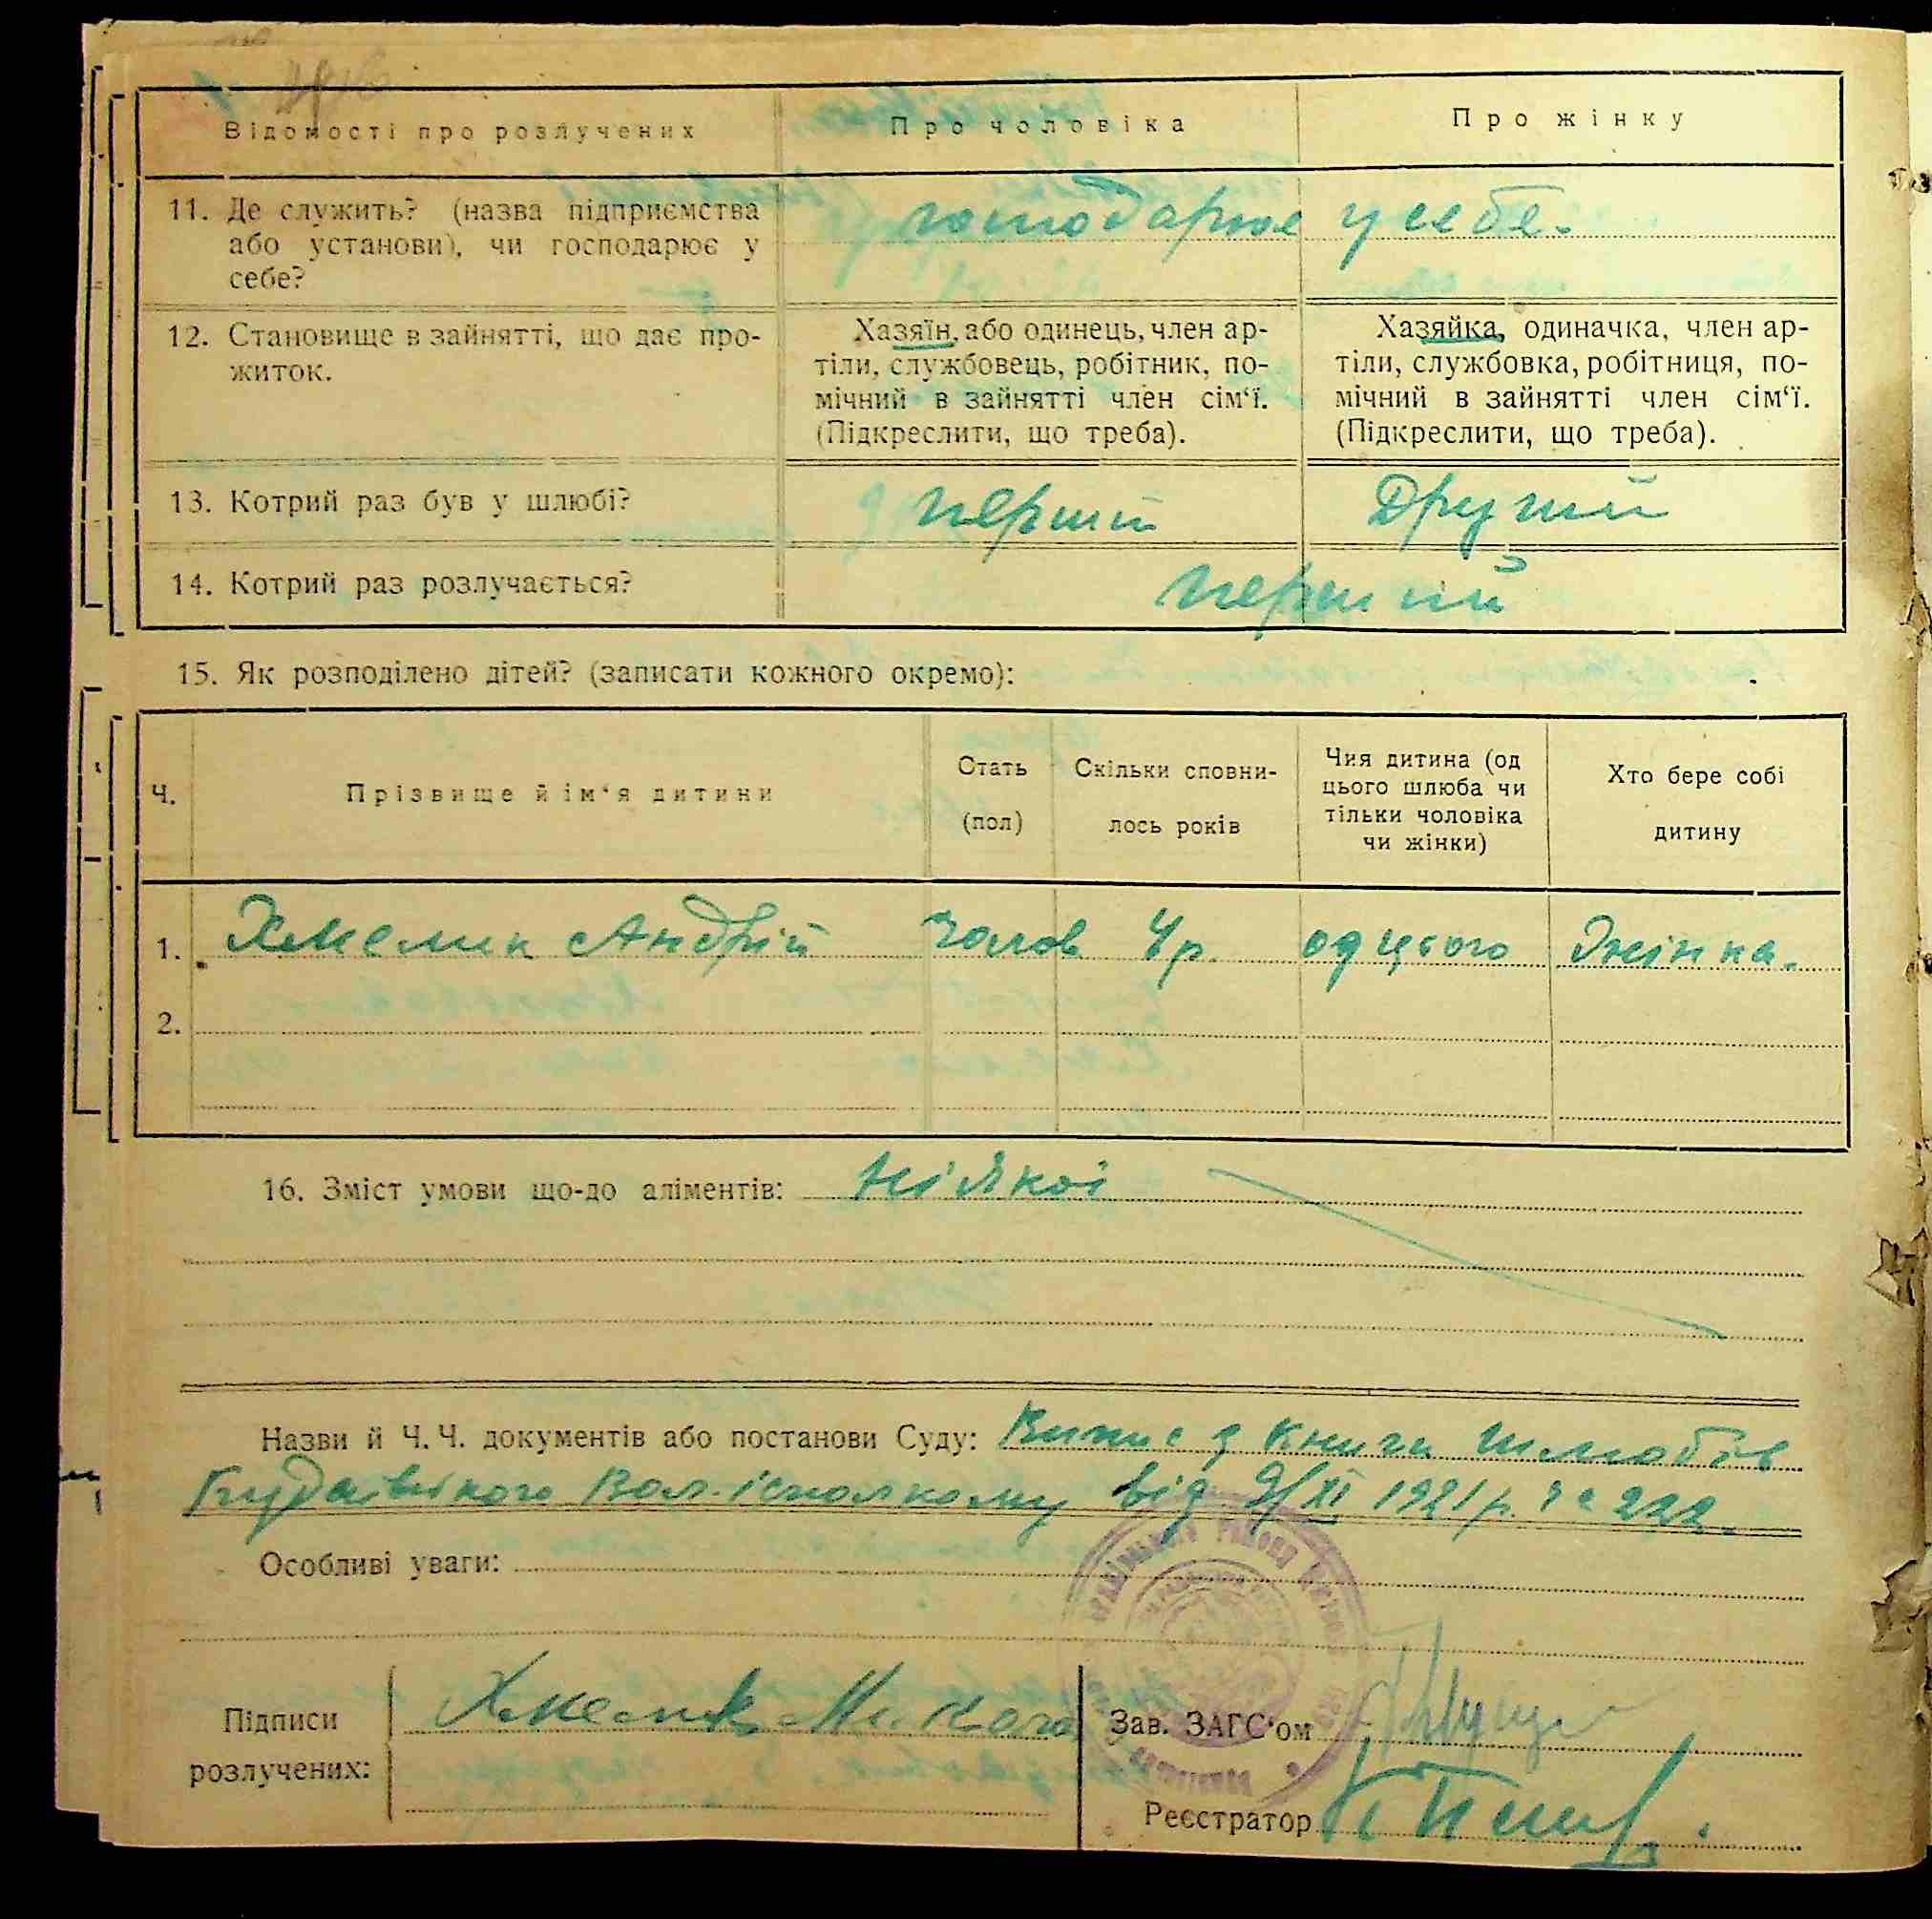 Відомості про розлучених
Про чоловіка
Про жінку
11. Де служить? (назва підприємства
або установи), чи господарює у
себе?
господарює у себе.
12. Становище в зайнятті, що дає про-
житок.
Хазяїн, або одинець, член ар-
тіли, службовець, робітник, по-
мічний в зайнятті член сім‘ї.
(Підкреслити, що треба).
Хазяйка, одиначка, член ар-
тіли, службовка, робітниця, по-
мічний в зайнятті член сім‘ї.
(Підкреслити, що треба).
13. Котрий раз був у шлюбі?
перший
Другий
14. Котрий раз розлучається?
перший
15. Як розподілено дітей? (записати кожного окремо):
Ч.
Прізвище й ім‘я дитини
Стать
(пол)
Скільки сповни-
лось років
Чия дитина (од
цього шлюба чи
тільки чоловіка
чи жінки)
Хто бере собі
дитину
1. Хмелик Андрій чолов 4 р. од цього Жінка.
2.
16. Зміст умови що-до аліментів: ніякої
Назви й Ч. Ч. документів або постанови Суду: Випис з книги шлюбів
Вол. ісполкому від 9/XI 1921 р. за 222.
Особливі уваги:
Підписи
розлучених:
Хмелик
Зав. ЗАГС‘ом
Реєстратор